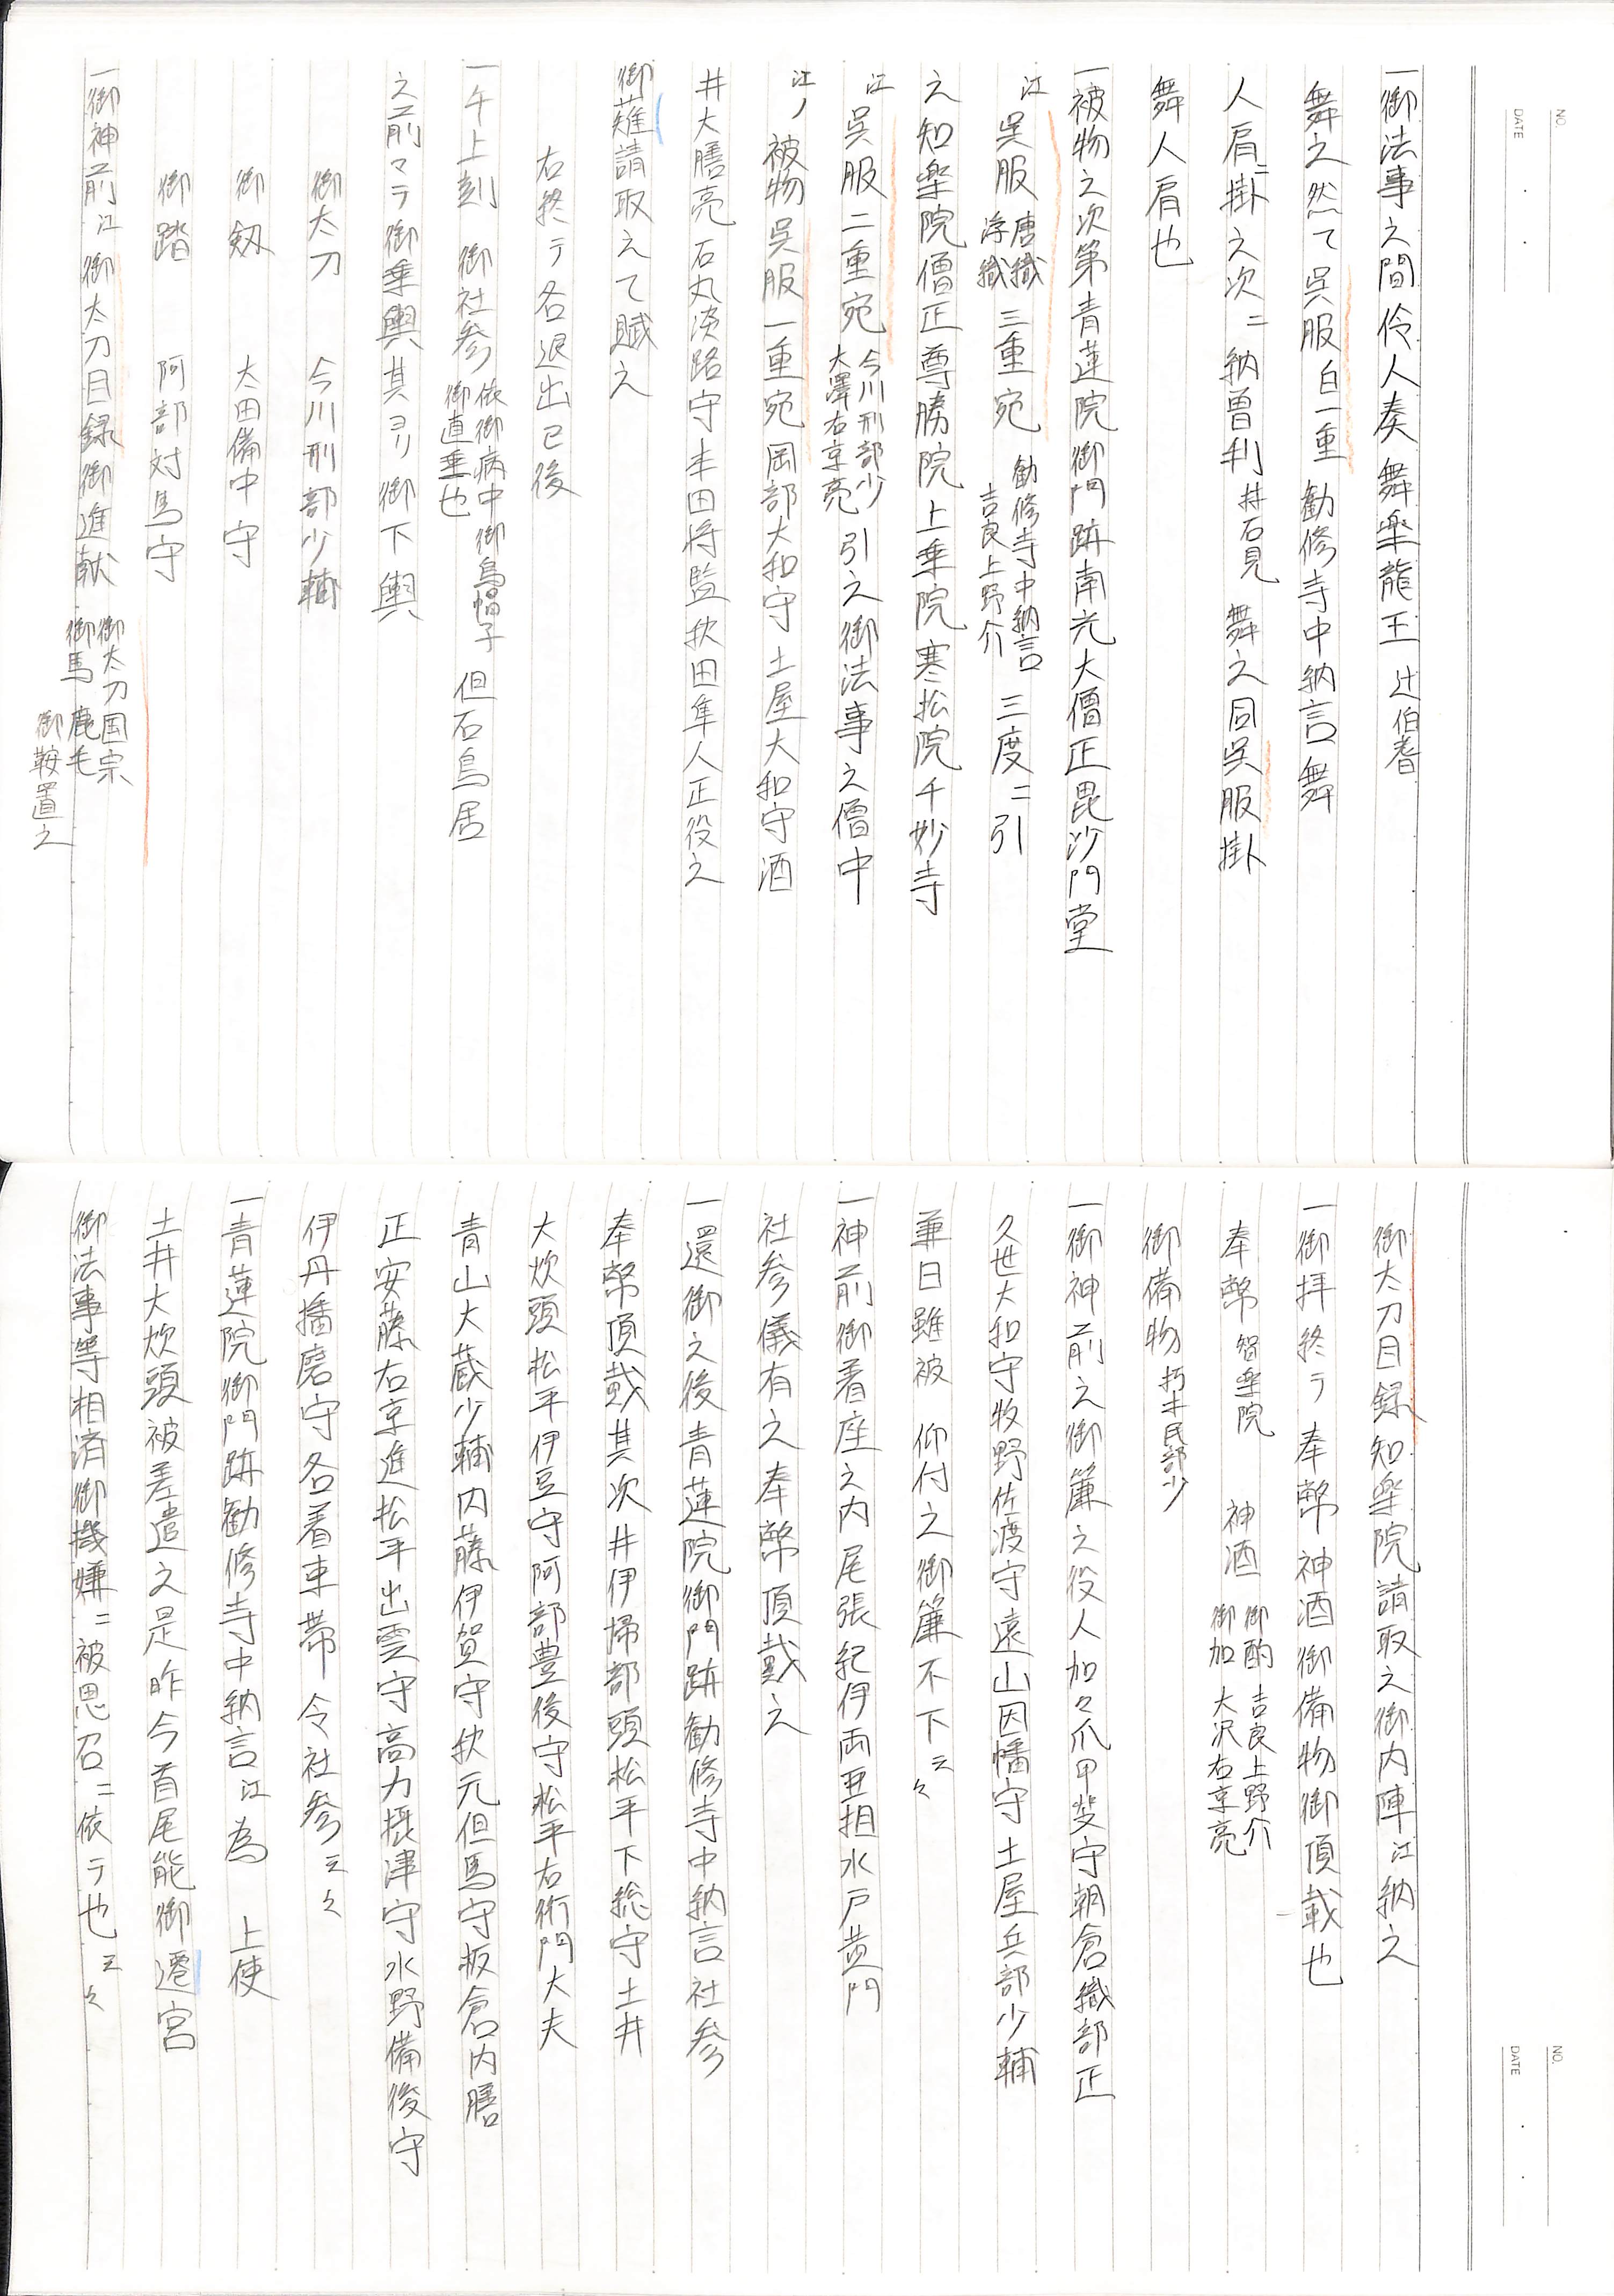 NO.
DATE
一御法事之間伶人奏舞楽龍王 辻伯耆
舞之然〆て呉服白一重勧修寺中納言舞
人肩ニ掛之次ニ納曽利 井石見 舞之同呉服掛
舞人肩也
一被物之次第青蓮院御門跡南光大僧正毘沙門堂
江呉服 唐織 浮織 三重宛 勧修寺中納言 吉良上野介 三度ニ引
之知楽院僧正尊勝院上乗院寒松院千妙寺
江呉服二重宛 今川刑部少 大澤右京亮 引之御法事之僧中
江ノ被物呉服一重宛岡部大和守土屋大和守酒
井大膳亮石丸淡路守本田将監秋田隼人正役之
御薙請取えて賦之
右終テ各退出已後
一午上刻 御社参 依御病中御烏帽子 御直垂也 但石鳥居
之前マテ御乗輿其ヨリ御下輿
御太刀 今川刑部少輔
御剱 太田備中守
御踏 阿部対馬守
一御神前江御太刀目録御進献 御太刀国宗 御馬鹿毛 御鞍置之
NO.
DATE
御太刀目録知楽院請取之御内陣江納之
一御拝終テ奉幣神酒御備物御頂載也
奉幣 智楽院 神酒 御酌 吉良上野介 御加 大沢右京亮
御備物 朽木民部少
一御神前之御簾之役人加々爪甲斐守朝倉織部正
久世大和守牧野佐渡守遠山因幡守土屋兵部少輔
兼日雖被 仰付之御簾不下云々
一神前御着座之内尾張紀伊両亜相水戸黄門
社参儀有之奉幣頂戴之
一還御之後青蓮院御門跡勧修寺中納言社参
奉幣頂戴其次井伊掃部頭松平下総守土井
大炊頭松平伊豆守阿部豊後守松平右衛門大夫
青山大蔵少輔内藤伊賀守秋元但馬守板倉内膳
正安藤右京進松平出雲守高力摂津守水野備後守
伊丹播磨守各着束帯令社参云々
一青蓮院御門跡勧修寺中納言江為 上使
土井大炊頭被差遣之是昨今首尾能御遷宮
御法事等相済御機嫌ニ被思召ニ依テ也云々